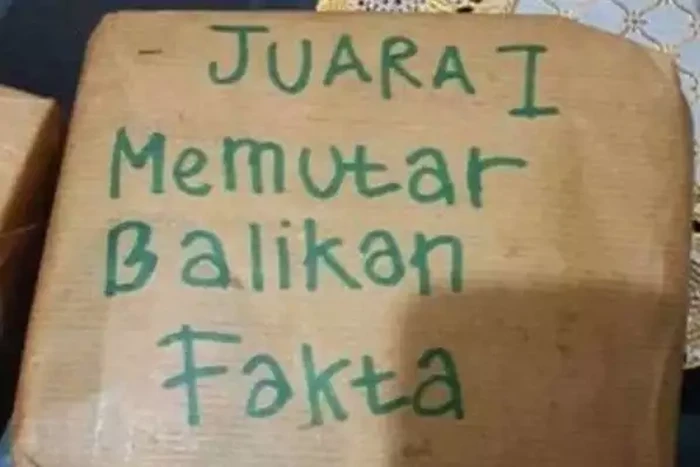 - JUARA I
Memutar
Balikan
Fakta